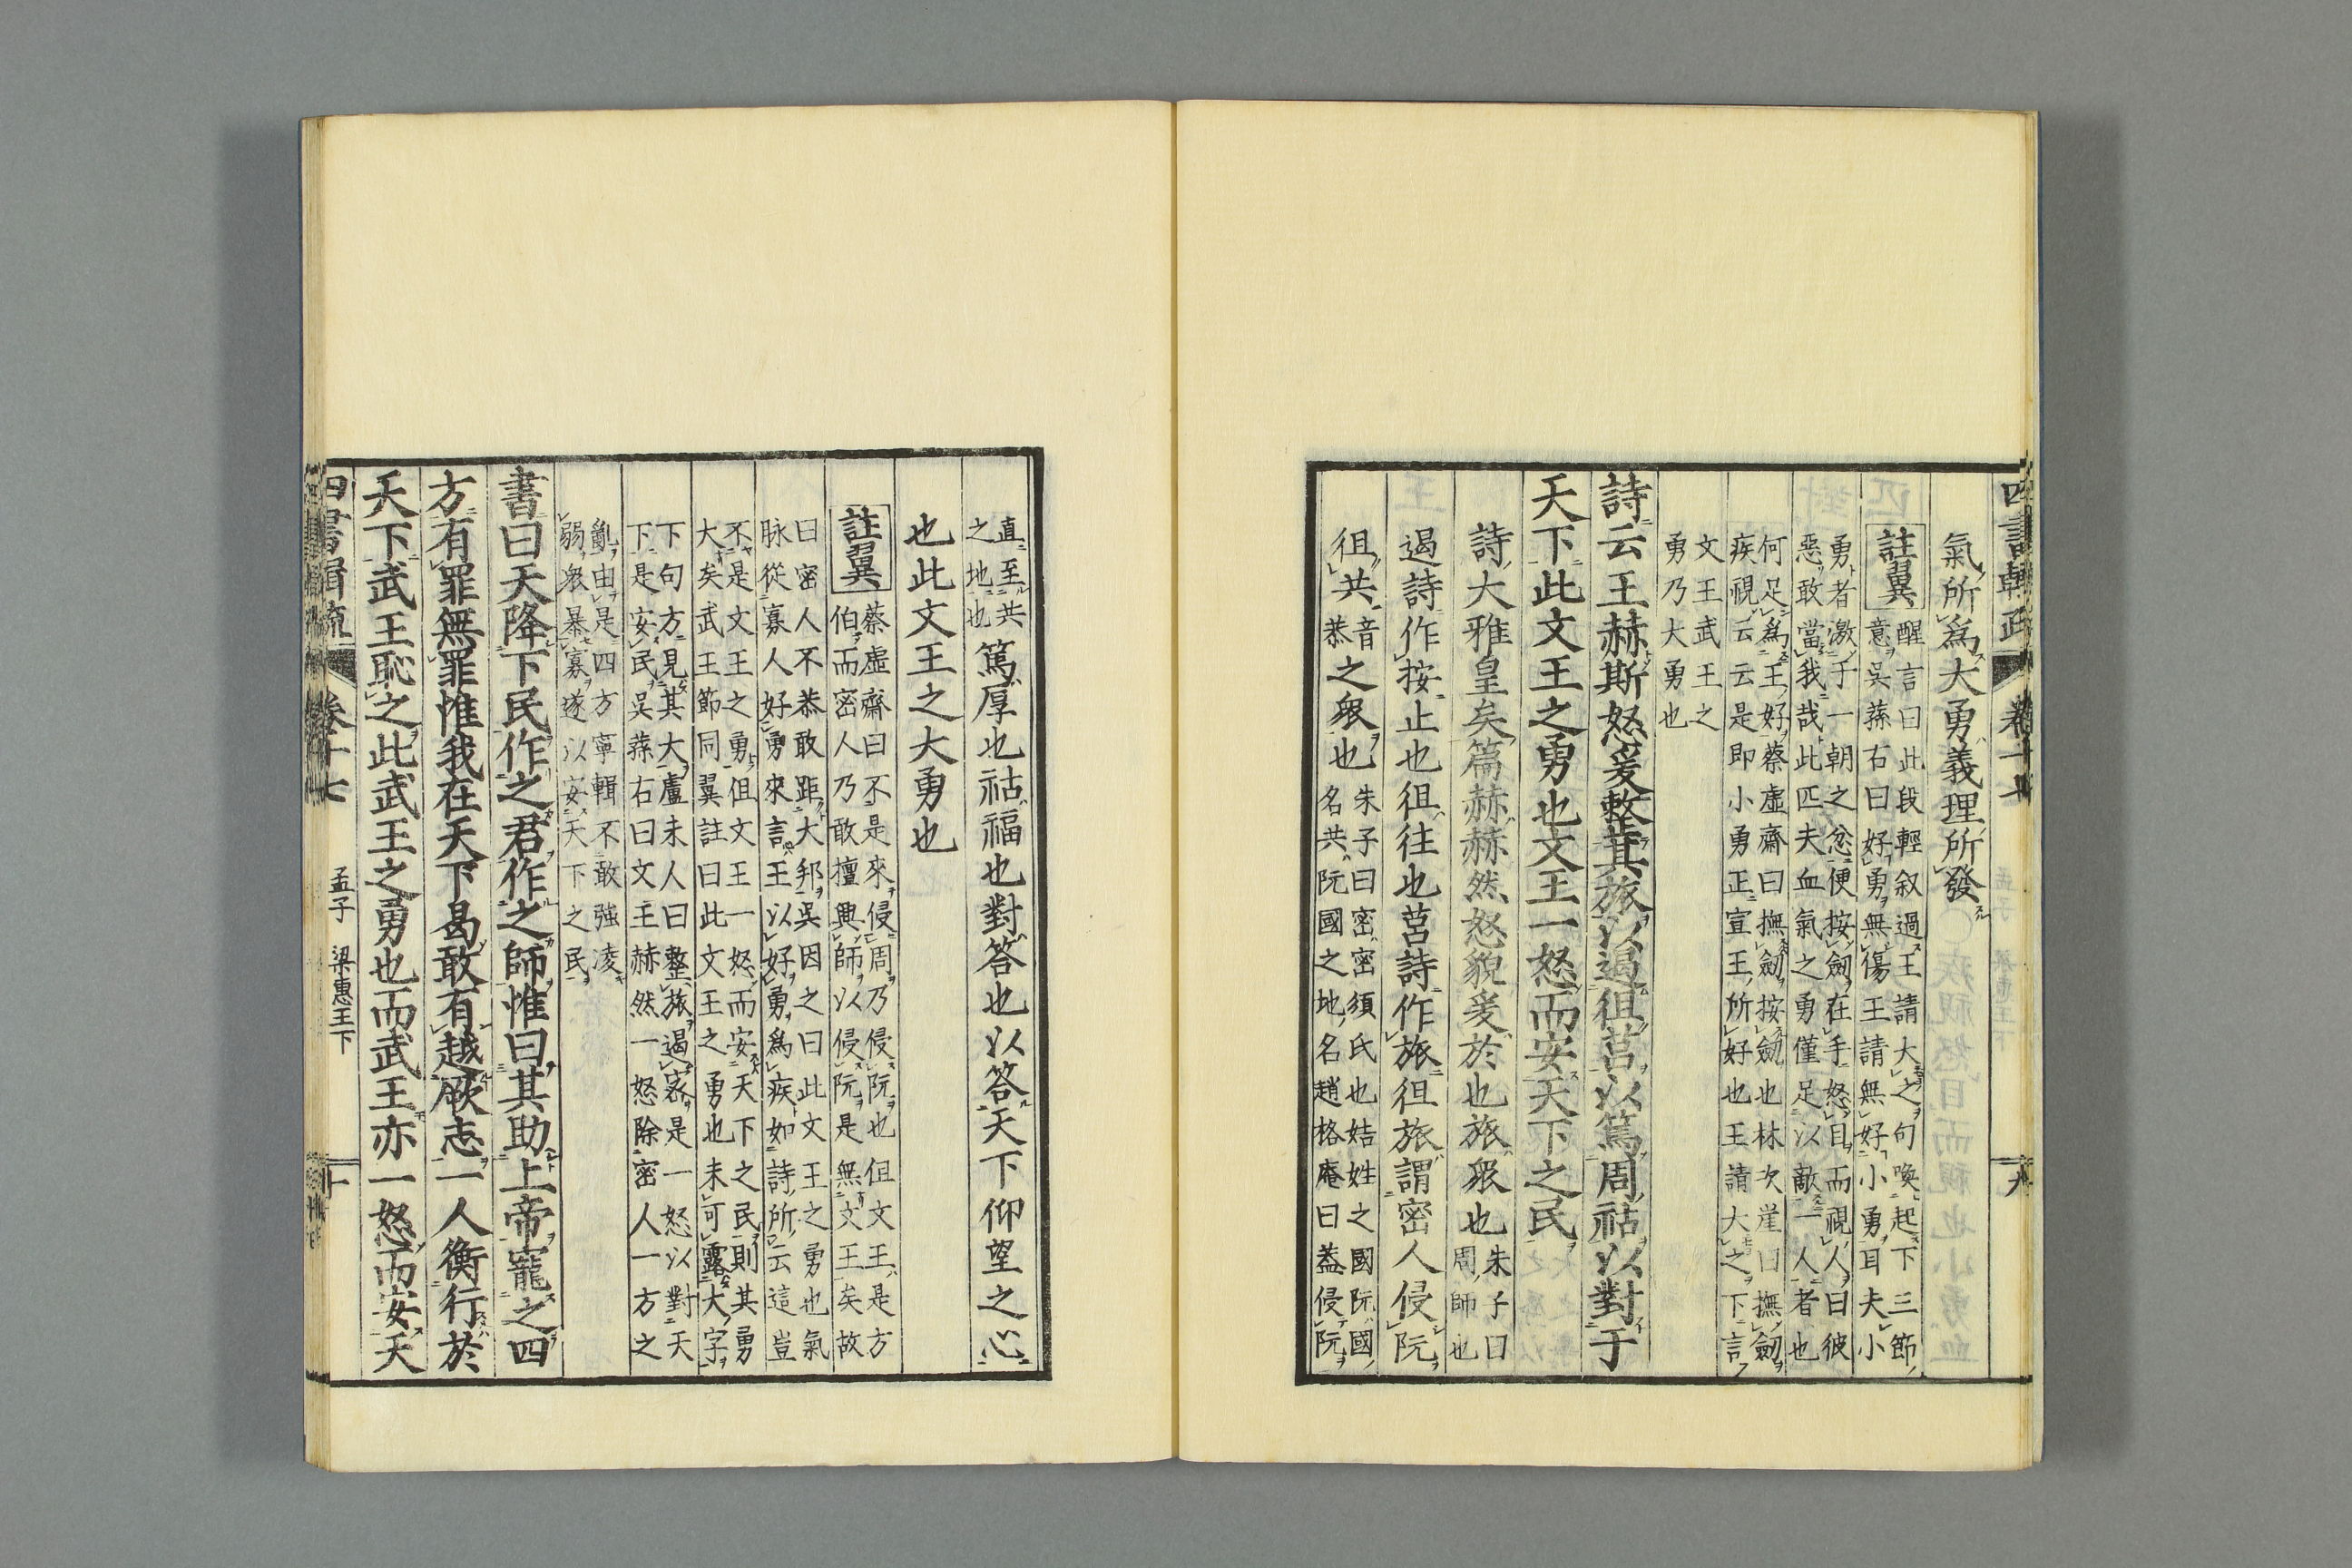 四書輯疏 卷十七
氣所爲大勇義理所發
註翼
醒言曰此段輕叙過王請大之句喚起下三節
意吳蓀右曰好勇無傷王請無好小勇耳夫小
勇者激于一朝之忿便按劒在手怒目而視人曰彼
惡敢當我哉此匹夫血氣之勇僅足以敵一人者也
何足爲王好蔡虛齋曰撫劒按劒也林次崖曰撫劒
疾視云云是即小勇正宣王所好也王請大之下言
文王武王之
勇乃大勇也
詩云王赫斯怒爰整其旅以遏徂莒以篤周祜以對于
天下此文王之勇也文王一怒而安天下之民
詩大雅皇矣篇赫赫然怒貌爰於也旅衆也
朱子曰
周師也
遏詩作按止也徂往也莒詩作旅徂旅謂密人侵阮
徂共
音恭
之衆也
朱子曰密密須氏也姞姓之國阮國
名共阮國之地名趙格庵曰蓋侵阮
直至共
之地也
篤厚也祜福也對答也以答天下仰望之心
也此文王之大勇也
註翼
蔡虛齋曰不是來侵周乃侵阮也但文王是方
伯而密人乃敢擅興師以侵阮是無文王矣故
曰密人不恭敢距大邦吳因之曰此文王之勇也氣
脉從寡人好勇來言王以好勇爲疾如詩所云這豈
不是文王之勇但文王一怒而安天下之民則其勇
大矣武王節同翼註曰此文王之勇也未可露大字
下句方見其大盧未人曰整旅遏密是一怒以對天
下是安民吳蓀右曰文王赫然一怒除密人一方之
亂由是四方寧輯不敢強凌
弱衆暴寡遂以安天下之民
書曰天降下民作之君作之師惟曰其助上帝寵之四
方有罪無罪惟我在天下曷敢有越厥志一人衡行於
天下武王恥之此武王之勇也而武王亦一怒而安天
四書輯疏 卷十七 孟子 梁惠王下